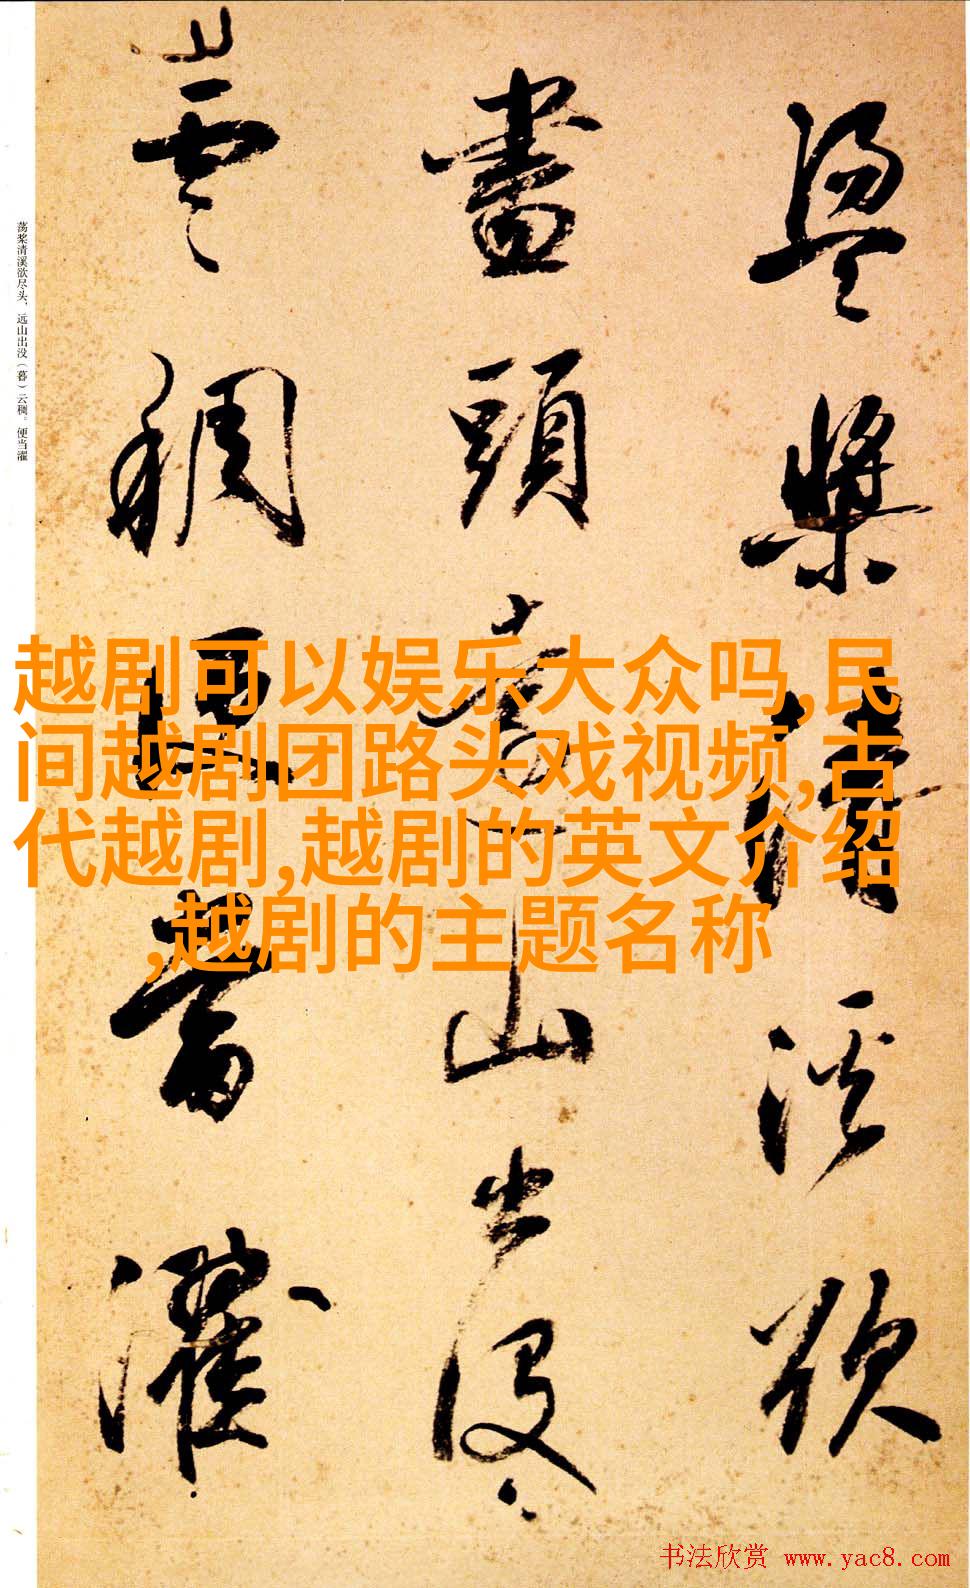 盪槳清溪欲
盡頭遠山出没
暮雲稠便當濯
荡桨清溪欲尽头，远山出没（暮）云稠。便当濯
越剧可以娱乐大众吗,民
间越剧团路头戏视频,古
代越剧,越剧的英文介绍
,越剧的主题名称
书法欣赏 www.yac8.com